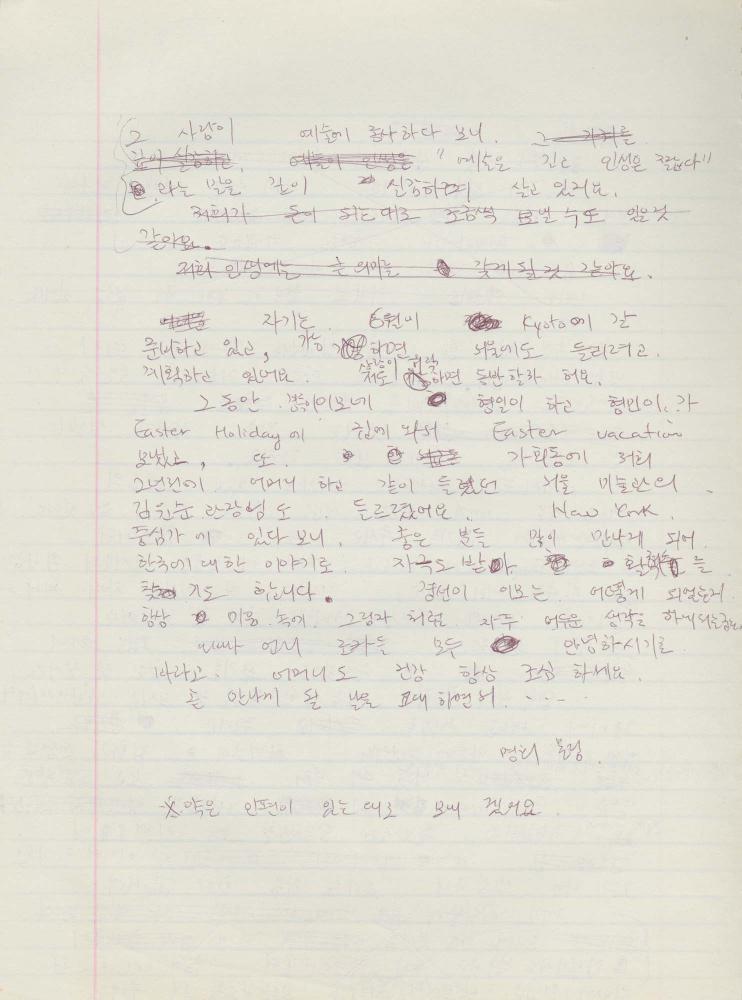 그 사람이 예술에 종사하다 보니. 그
"예술은 길고 인생은 짧다"
라는 말을 같이 실감하며 살고 있어요.
저희가 돈이 되는대로 조금씩 보낼 수도 있을 것
같아요.
저희 인생에는 큰 의미를 갖게 될 것 같아요.
자기는 6월에 Kyoto에 갈
준비하고 있고, 가능하면 서울에도 들리려고.
계획하고 있어요. 저도 하면 동반할라 해요.
그 동안 이모네 형일이 하고 형민이.가
Easter Holiday에 집에 와서 Easter vacation
보냈고, 또. 가회동에 저희
그년전에 어머니 하고 같이 들렸던 서울 미술관의
김 관장님도 들르셨어요. New York.
중심가에 있다 보니. 좋은 분들 많이 만나게 되어.
한국에 대한 이야기로 자극도 받아 들
찾기도 합니다. 이모는. 어떻게 되었는지.
항상 마음 속에. 그림자 처럼 자주 어두운 생각을 하게
언니 조카들 모두 안녕하시기를
바라고. 어머니도 건강 항상 조심하세요.
또 만나게 될 날을 고대하면서. . . -
명희 올림.
※ 약은 인편이 있는대로 보내 겠어요.